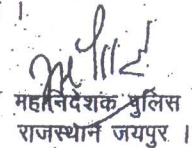 महानिदेशक पुलिस
राजस्थान जयपुर ।